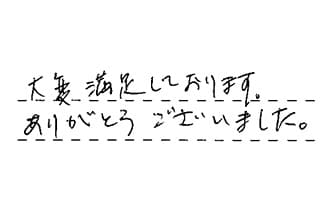 大変満足しております。
ありがとうございました。